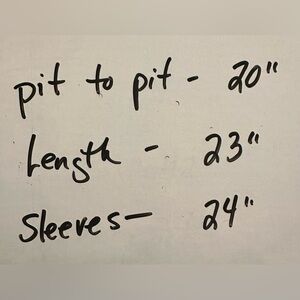 pit to pit - 20"
Length - 23"
Sleeves - 24"